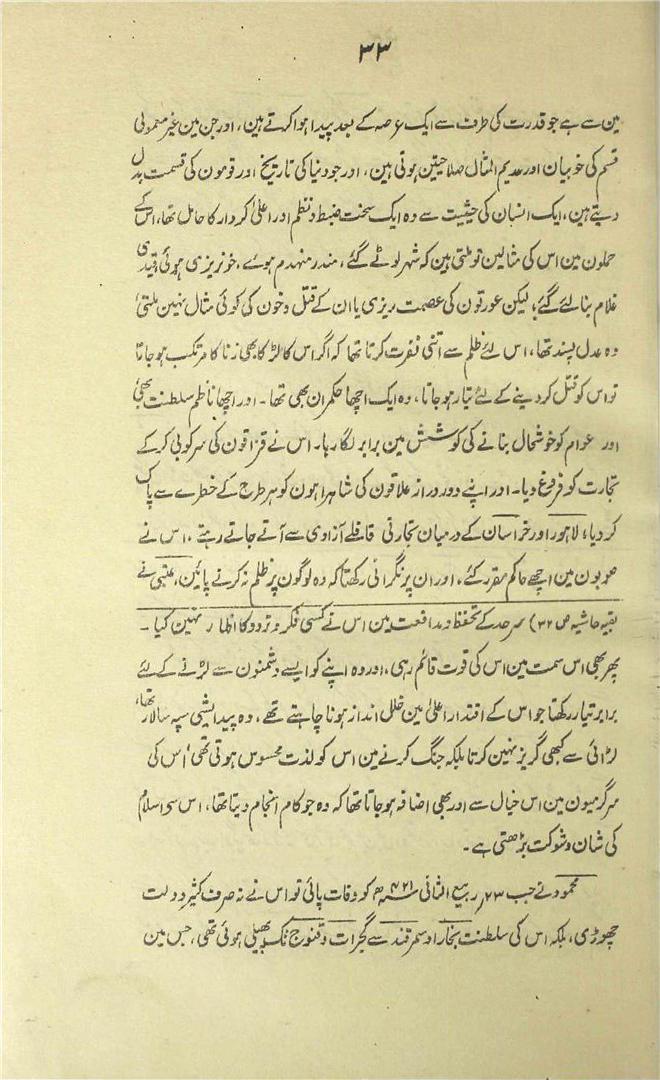 ۳۳
مین سے ہے جو قدرت کی طرف سے ایک عرصہ کے بعد پیدا ہوا کرتے ہین، اور جن مین غیر معمولی
قسم کی خوبیان اور عدیم المثال صلاحیتین ہوتی ہین، اور جو دنیا کی تاریخ اور قومون کی قسمت بدل
دیتے ہین، ایک انسان کی حیثیت سے وہ ایک سخت ضبط و نظم اور اعلیٰ کردار کا حامل تھا، اس کے
حملون مین اس کی مثالین تو ملتی ہین کہ شہر لوٹے گئے، مندر منہدم ہوے، خونریزی ہوئی، قیدی
غلام بنا لئے گئے، لیکن عورتون کی عصمت ریزی یا ان کے قتل و خون کی کوئی مثال نہین ملتی،
وہ عدل پسند تھا، اس لئے ظلم سے اتنی نفرت کرتا تھا کہ اگر اس کا لڑکا بھی زنا کا مرتکب ہو جاتا
تو اس کو قتل کر دینے کے لئے تیار ہو جاتا، وہ ایک اچھا حکمران بھی تھا۔ اور اچھا ناظم سلطنت بھی،
اور عوام کو خوشحال بنانے کی کوشش مین برابر لگا رہا۔ اس نے قزاقون کی سرکوبی کر کے
تجارت کو فروغ دیا۔ اور اپنے دور دراز علاقون کی شاہراہون کو ہر طرح کے خطرے سے پاک
کر دیا، لاہور اور خراسان کے درمیان تجارتی قافلے آزادی سے آتے جاتے رہتے، اس نے
صوبون مین اچھے حاکم مقرر کئے، اور ان پر نگرانی رکھتا کہ وہ لوگون پر ظلم نہ کرنے پائین، عتبی نے
بقیہ حاشیہ ص ۳۲) سرحد کے تحفظ و مدافعت مین اس نے کسی فکر و تردد کا اظہار نہین کیا۔
پھر بھی اس سمت مین اس کی قوت قائم رہی، اور وہ اپنے کو ایسے دشمنون سے لڑنے کے لئے
برابر تیار رکھتا جو اس کے اقتدار اعلیٰ مین خلل انداز ہونا چاہتے تھے، وہ پیدایشی سپہ سالار تھا،
لڑائی سے کبھی گریز نہین کرتا بلکہ جنگ کرنے مین اس کو لذت محسوس ہوتی تھی، اس کی
سرگرمیون مین اس خیال سے اور بھی اضافہ ہو جاتا تھا کہ وہ جو کام انجام دیتا تھا، اس سے اسلام
کی شان و شوکت بڑھتی ہے۔
محمود نے جب ۲۳ ربیع الثانی ۴۲۱ھ کو وفات پائی تو اس نے نہ صرف کثیر دولت
چھوڑی، بلکہ اس کی سلطنت بخارا و سمرقند سے گجرات و قنوج تک پھیلی ہوئی تھی، جس مین